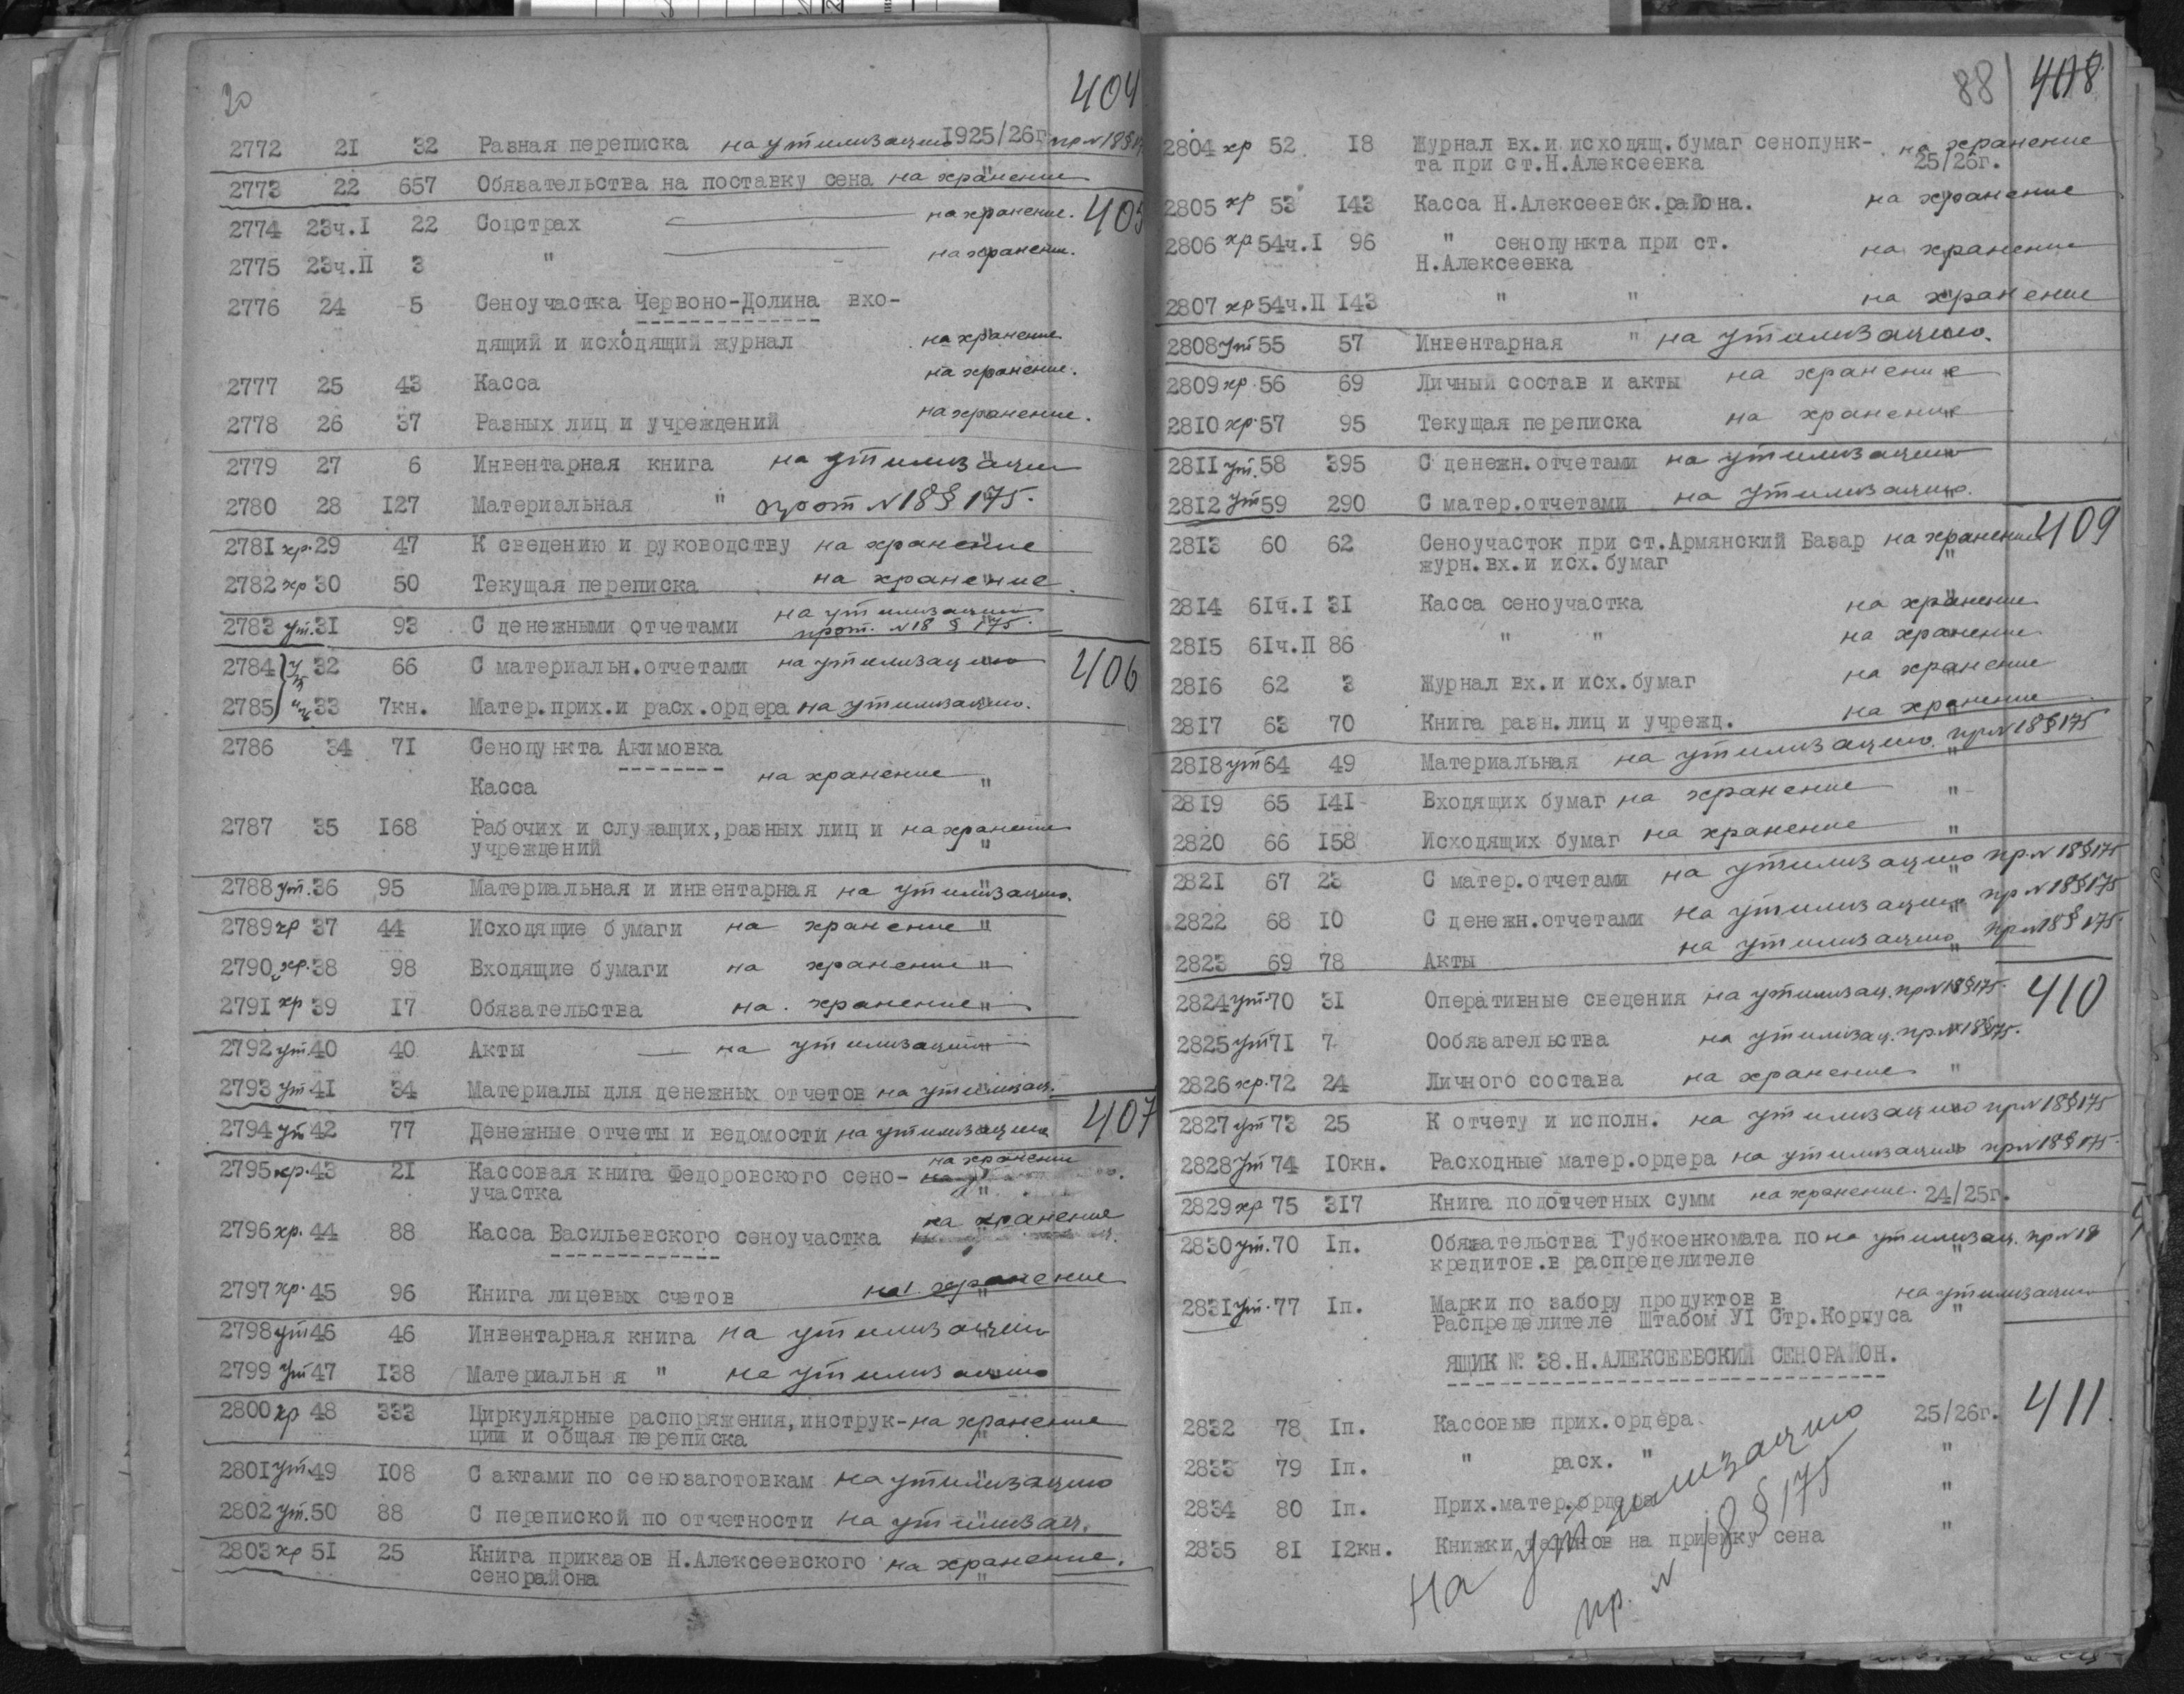 20
404
2772 21 32 Разная переписка на утилизацию 1925/26г. пр N18§17
2773 22 657 Обязательства на поставку сена на хранение "
2774 23ч.I 22 Соцстрах на хранение. " 405
2775 23ч.II 3 " на хранение.
2776 24 5 Сеноучастка Червоно-Долина вхо-
дящий и исходящий журнал на хранение "
2777 25 43 Касса на хранение. "
2778 26 37 Разных лиц и учреждений на хранение. "
2779 27 6 Инвентарная книга на утилизации "
2780 28 127 Материальная " прот N18§175. "
2781 хр. 29 47 К сведению и руководству на хранение "
2782 хр 30 50 Текущая переписка на хранение. "
2783 ут. 31 93 С денежными отчетами на утилизацию "
прот. N18 § 175.
2784 ут 32 66 С материальн.отчетами на утилизацию " 406
2785 33 7кн. Матер.прих.и расх.ордера на утилизацию. "
2786 34 71 Сенопункта Акимовка
Касса на хранение "
2787 35 168 Рабочих и служащих,разных лиц и на хранение
учреждений "
2788 ут. 36 95 Материальная и инвентарная на утилизацию. "
2789 хр 37 44 Исходящие бумаги на хранение "
2790 хр. 38 98 Входящие бумаги на хранение "
2791 хр 39 17 Обязательства на. хранение "
2792 ут. 40 40 Акты — на утилизацию "
2793 ут 41 34 Материалы для денежных отчетов на утилизац. "
2794 ут 42 77 Денежные отчеты и ведомости на утилизацию " 407
2795 хр. 43 21 Кассовая книга Федоровского сено- на хранении
участка "
2796 хр. 44 88 Касса Васильевского сеноучастка на хранение "
2797 хр. 45 96 Книга лицевых счетов на. хранение "
2798 ут 46 46 Инвентарная книга на утилизацию "
2799 ут 47 138 Материальн я " на утилизацию "
2800 хр 48 333 Циркулярные распоряжения,инструк- на хранение
ции и общая переписка "
2801 ут. 49 108 С актами по сенозаготовкам на утилизацию "
2802 ут. 50 88 С перепиской по отчетности на утилизац. "
2803 хр 51 25 Книга приказов Н.Алексеевского на хранение.
сенорайона "
88 408
2804 хр 52 18 Журнал вх.и исходящ.бумаг сенопунк- на хранение
та при ст.Н.Алексеевка 25/26г.
2805 хр 53 143 Касса Н.Алексеевск.района. на хранение "
2806 хр 54ч.I 96 " сенопункта при ст. на хранение
Н.Алексеевка
2807 хр 54ч.II 143 " " на хранение "
2808 ут 55 57 Инвентарная " на утилизацию. "
2809 хр. 56 69 Личный состав и акты на хранение "
2810 хр. 57 95 Текущая переписка на хранение "
2811 ут. 58 395 С денежн.отчетами на утилизацию "
2812 ут 59 290 С матер.отчетами на утилизацию. "
2813 60 62 Сеноучасток при ст.Армянский Базар на хранение 409
журн.вх.и исх.бумаг "
2814 61ч.I 31 Касса сеноучастка на хранение "
2815 61ч.II 86 " " на хранение "
2816 62 3 Журнал вх.и исх.бумаг на хранение
2817 63 70 Книга разн.лиц и учрежд. на хранение "
2818 ут 64 49 Материальная на утилизацию. пр N18§175 "
2819 65 141 Входящих бумаг на хранение "
2820 66 158 Исходящих бумаг на хранение "
2821 67 23 С матер.отчетами на утилизацию пр. N18§175 "
2822 68 10 С денежн.отчетами на утилизацию пр N18§175 "
2823 69 78 Акты на утилизацию пр N18§175. "
2824 ут 70 31 Оперативные сведения на утилизац. пр N18§175. 410
2825 ут 71 7 Ообязательства на утилизац. пр. N18§175.
2826 хр. 72 24 Личного состава на хранение "
2827 ут 73 25 К отчету и исполн. на утилизацию пр N18§175
2828 ут 74 10кн. Расходные матер.ордера на утилизацию пр N18§175.
2829 хр 75 317 Книга подотчетных сумм на хранение. 24/25г.
2830 ут. 70 1п. Обязательства Губкоенкомата по на утилизац. пр N18
кредитов.в распределителе "
2831 ут. 77 1п. Марки по забору продуктов в на утилизацию
Распределителе Штабом УI Стр.Корпуса "
ЯЩИК № 38.Н.АЛЕКСЕЕВСКИЙ СЕНОРАЙОН.
2832 78 1п. Кассовые прих.ордера 25/26г. 411
2833 79 1п. " расх. " "
2834 80 1п. Прих.матер.ордера "
2835 81 12кн. Книжки талонов на приемку сена "
На утилизацию
пр. N 18 § 175